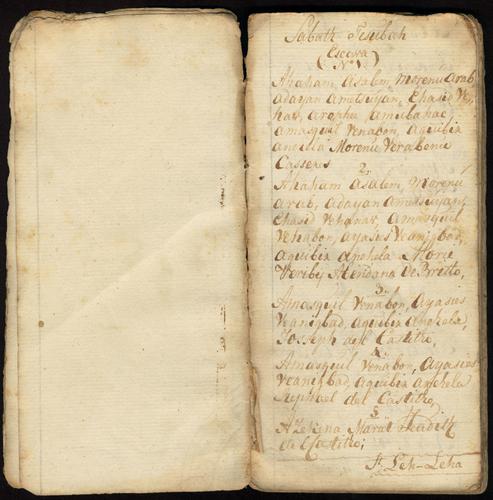 Sabath Tesubah
Escava
(N.º 1)
Ahaham, Asalem, Morenu Arab,
Adayan Ametsuyan, Chasid Ve,
hav, Arophe, Amubahac,
Amasquil Venabon, Aquibir
Morenu Verabenu
Casseres
2.
Ahaham Asalem, Morenu
Arab, Adayan Ametsuyan,
Chasid Vehanav, Amasquil
Venabon, Ayasis Veanigbad,
Aquibir Anghela Morie
Veribby Mendana De Britto,
3.
Amasquil Venabon, Ayasis
Veanigbad, Aquibir Anghela,
Josseph del Castilho,
4.
Amasquil Venabon, Ayasis
Veanigbad, Aquibir Anghela
Rephael del Castilho,
5.
A Zekena Marat Judith
de Castilho;
P. Leh-Leha